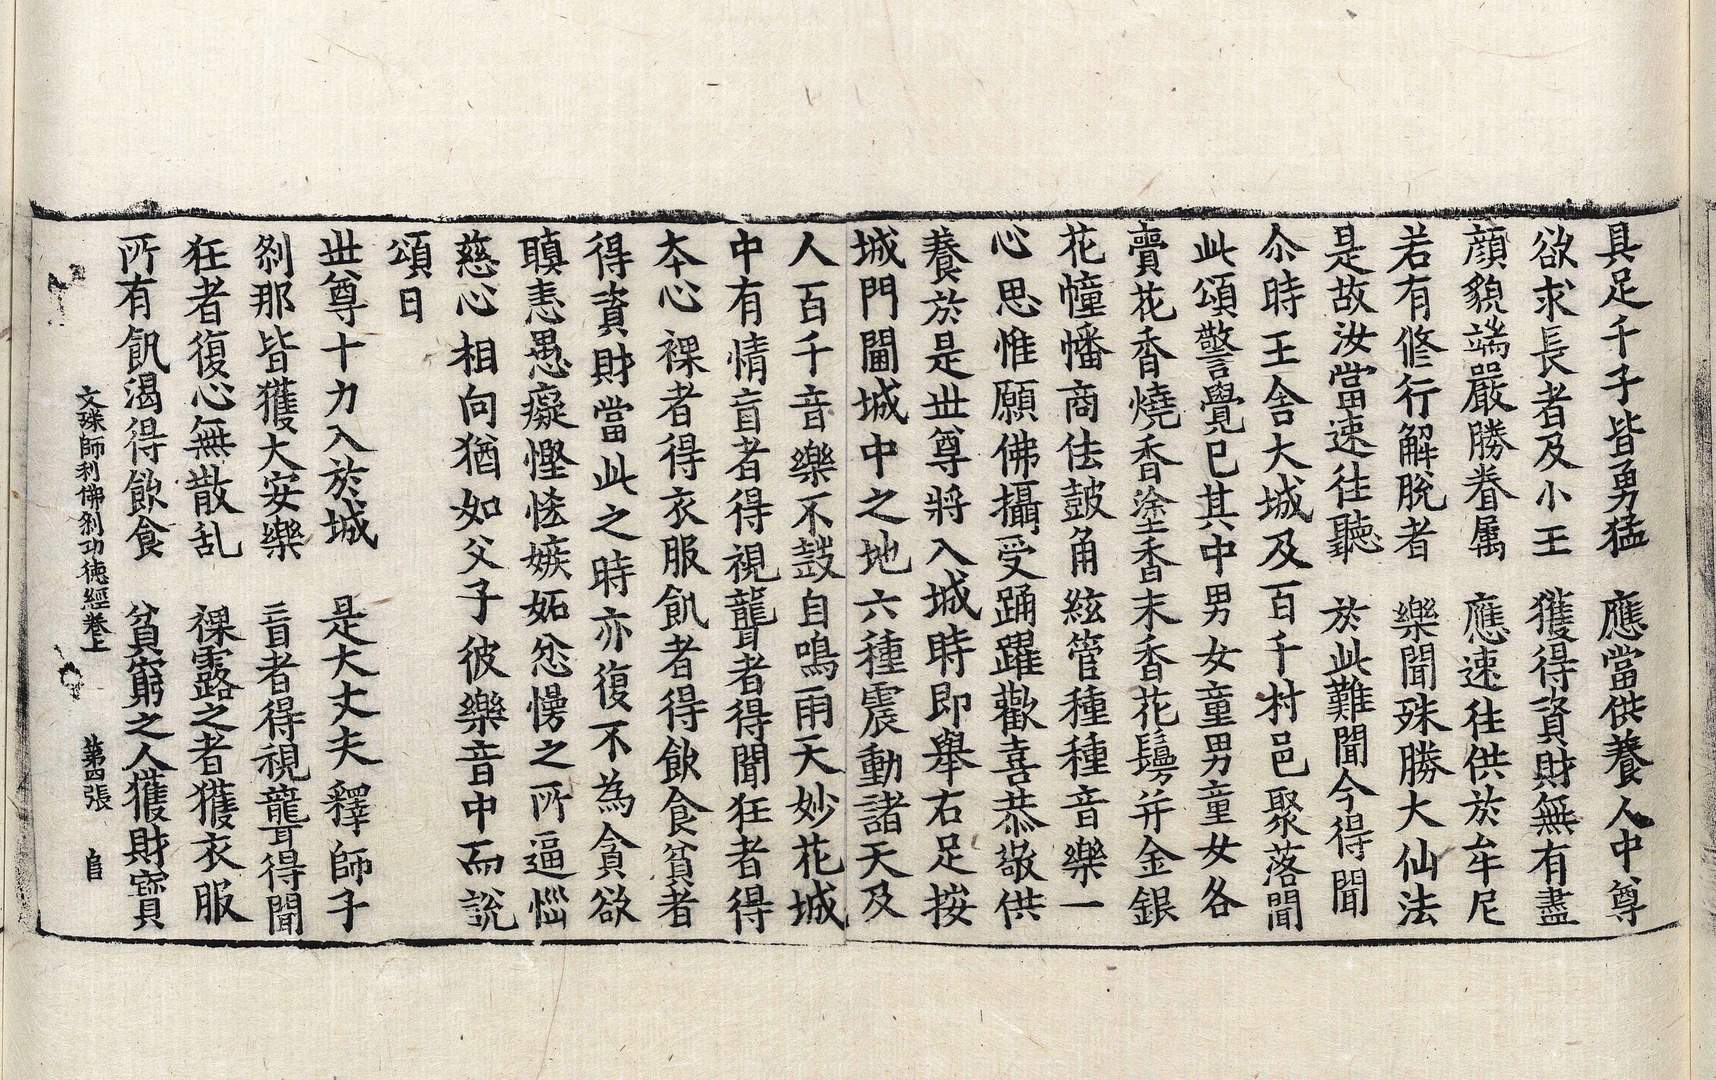 具足千子皆勇猛　應當供養人中尊
欲求長者及小王　獲得資財無有盡
顔貌端嚴勝眷属　應速往供於牟尼
若有修行解脫者　樂聞殊勝大仙法
是故汝當速往聽　於此難聞今得聞
尒時王舍大城及百千村邑聚落聞
此頌警覺已其中男女童男童女各
賷花香燒香塗香末香花鬘并金銀
花幢幡商佉鼓角絃管種種音樂一
心思惟願佛攝受踊躍歡喜恭敬供
養於是世尊將入城時即舉右足按
城門閫城中之地六種震動諸天及
人百千音樂不鼓自鳴雨天妙花城
中有情盲者得視聾者得聞狂者得
本心裸者得衣服飢者得飲食貧者
得資財當此之時亦復不為貪欲
瞋恚愚癡慳悋嫉妬忿慢之所逼惱
慈心相向猶如父子彼樂音中而說
頌曰
世尊十力入於城　是大丈夫釋師子
刹那皆獲大安樂　盲者得視聾得聞
狂者復心無散乱　裸露之者獲衣服
所有飢渴得飲食　貧窮之人獲財寶
文殊師利佛刹功徳經卷上　第四張　自